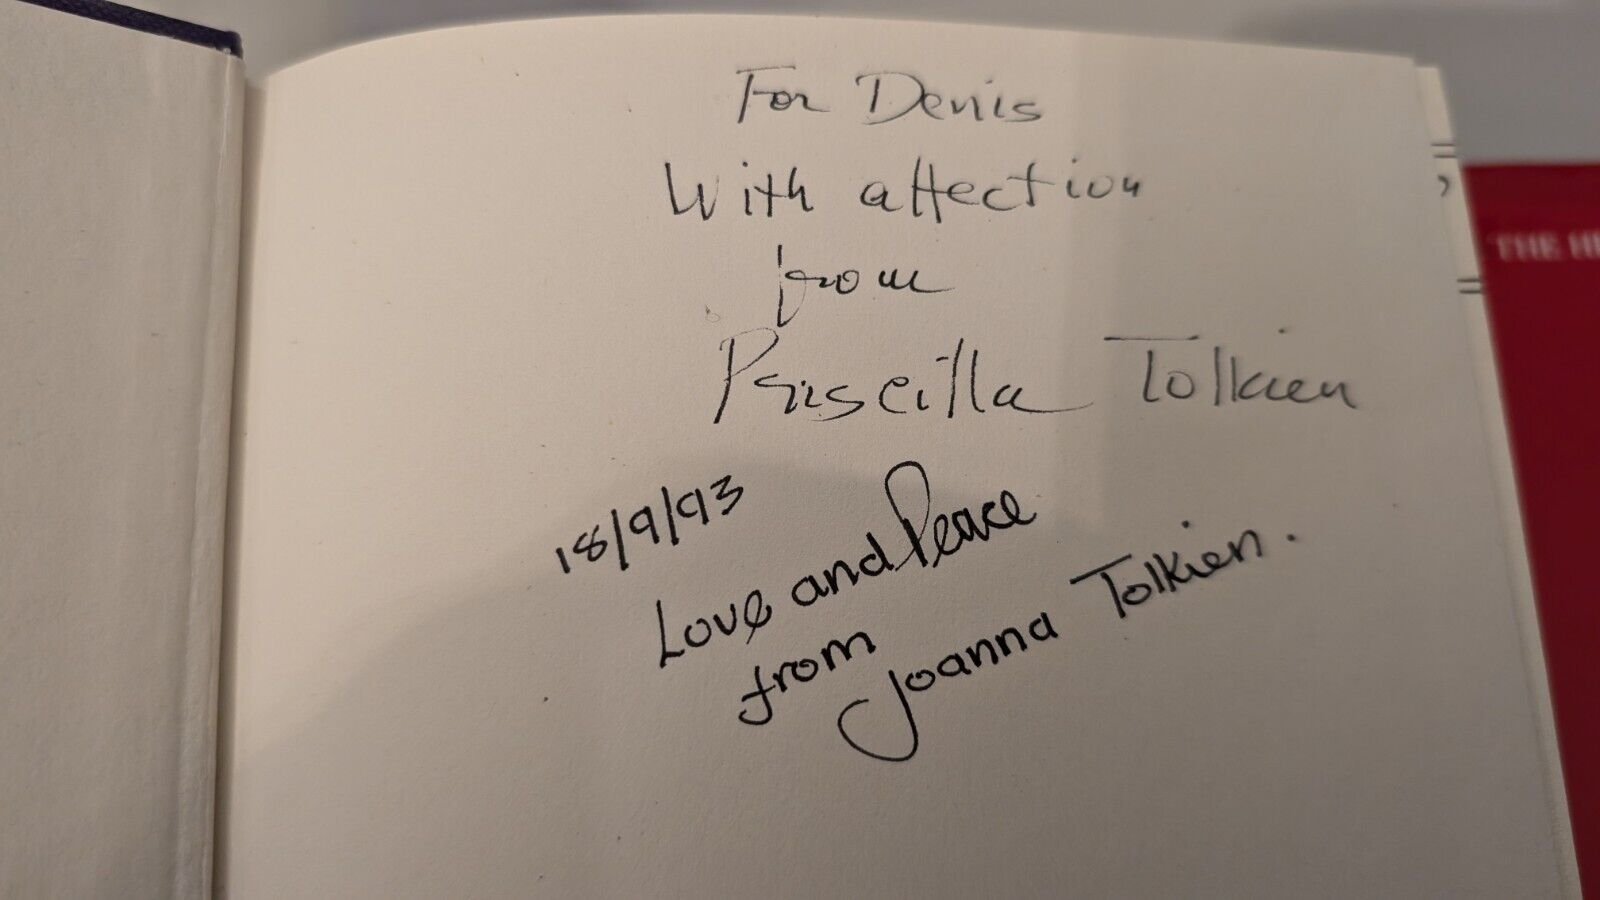 For Denis
With affection
from
Priscilla Tolkien
18/9/93
Love and Peace
from
Joanna Tolkien.
THE